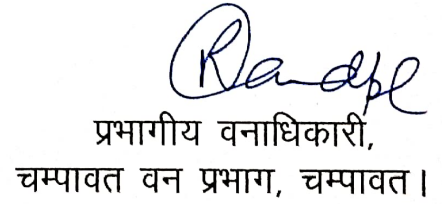 प्रभागीय वनाधिकारी,
चम्पावत वन प्रभाग, चम्पावत।